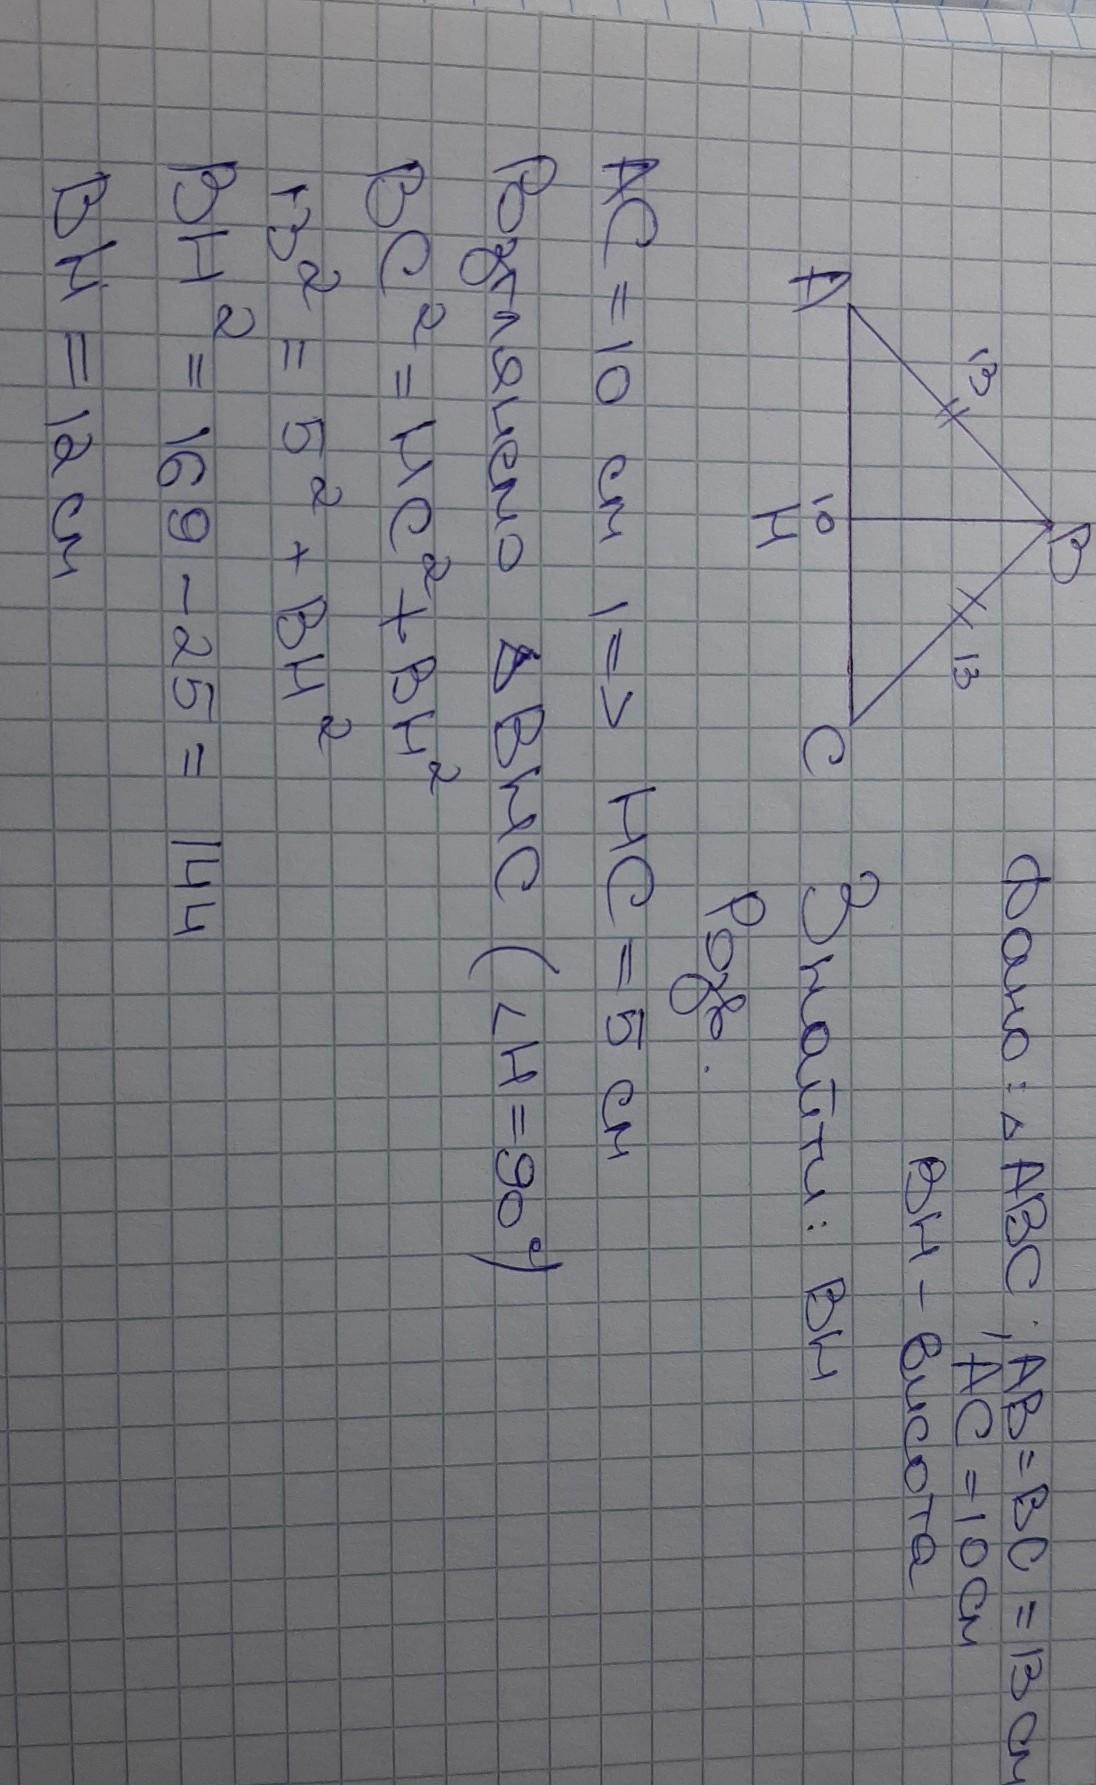 B
13
13
10
A
H
C
Дано: △ABC; AB=BC=13 см
AC=10 см
BH - висота
Знайти: BH
Розв.
AC = 10 см |=> HC = 5 см
Розглянемо △BHC (∠H=90°)
BC² = HC² + BH²
13² = 5² + BH²
BH² = 169 - 25 = 144
BH = 12 см